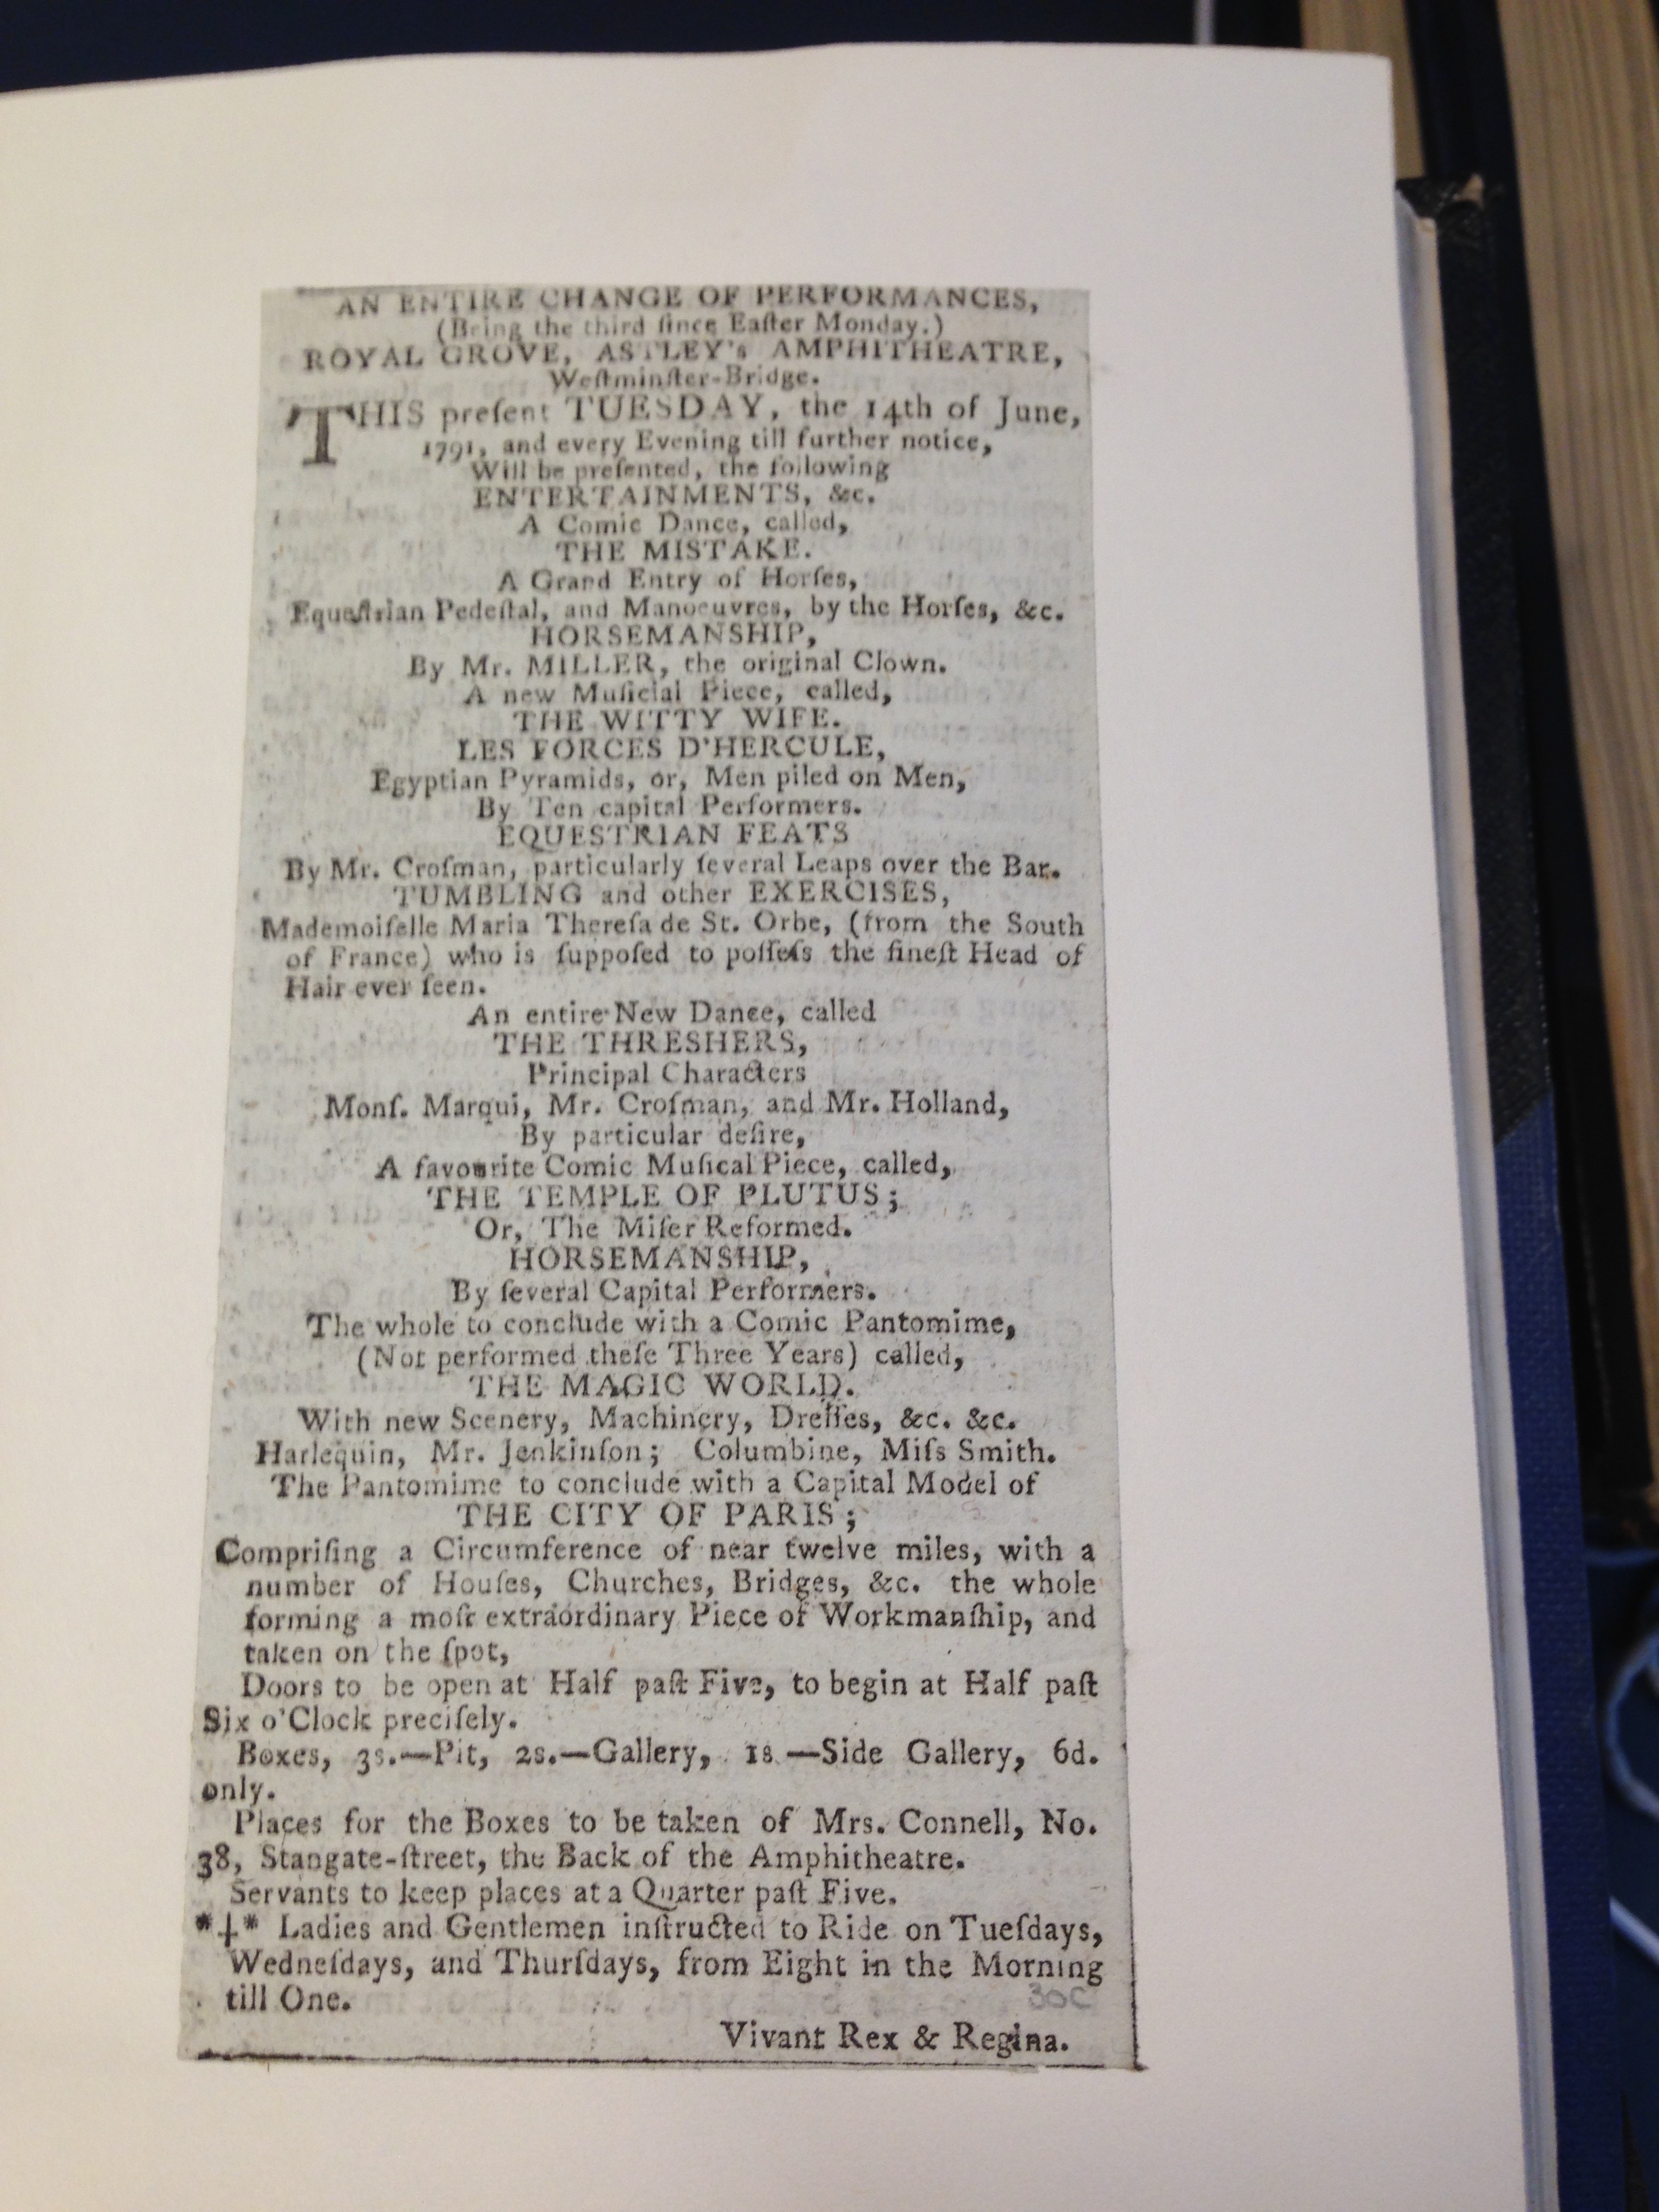 AN ENTIRE CHANGE OF PERFORMANCES,
(Being the third ſince Eaſter Monday.)
ROYAL GROVE, ASTLEY's AMPHITHEATRE,
Weſtminſter-Bridge.
THIS preſent TUESDAY, the 14th of June,
1791, and every Evening till further notice,
Will be preſented, the following
ENTERTAINMENTS, &c.
A Comic Dance, called,
THE MISTAKE.
A Grand Entry of Horſes,
Equeſtrian Pedeſtal, and Manoeuvres, by the Horſes, &c.
HORSEMANSHIP,
By Mr. MILLER, the original Clown.
A new Muſicial Piece, called,
THE WITTY WIFE.
LES FORCES D'HERCULE,
Egyptian Pyramids, or, Men piled on Men,
By Ten capital Performers.
EQUESTRIAN FEATS
By Mr. Croſman, particularly ſeveral Leaps over the Bar.
TUMBLING and other EXERCISES,
Mademoiſelle Maria Thereſa de St. Orbe, (from the South
of France) who is ſuppoſed to poſſeſs the fineſt Head of
Hair ever ſeen.
An entire New Dance, called
THE THRESHERS,
Principal Characters
Monſ. Marqui, Mr. Croſman, and Mr. Holland,
By particular deſire,
A favourite Comic Muſical Piece, called,
THE TEMPLE OF PLUTUS;
Or, The Miſer Reformed.
HORSEMANSHIP,
By ſeveral Capital Performers.
The whole to conclude with a Comic Pantomime,
(Not performed theſe Three Years) called,
THE MAGIC WORLD.
With new Scenery, Machinery, Dreſſes, &c. &c.
Harlequin, Mr. Jenkinſon; Columbine, Miſs Smith.
The Pantomime to conclude with a Capital Model of
THE CITY OF PARIS;
Compriſing a Circumference of near twelve miles, with a
number of Houſes, Churches, Bridges, &c. the whole
forming a moſt extraordinary Piece of Workmanſhip, and
taken on the ſpot,
Doors to be open at Half paſt Five, to begin at Half paſt
Six o'Clock preciſely.
Boxes, 3s.—Pit, 2s.—Gallery, 1s.—Side Gallery, 6d.
only.
Places for the Boxes to be taken of Mrs. Connell, No.
38, Stangate-ſtreet, the Back of the Amphitheatre.
Servants to keep places at a Quarter paſt Five.
*†* Ladies and Gentlemen inſtructed to Ride on Tueſdays,
Wedneſdays, and Thurſdays, from Eight in the Morning
till One.
Vivant Rex & Regina.